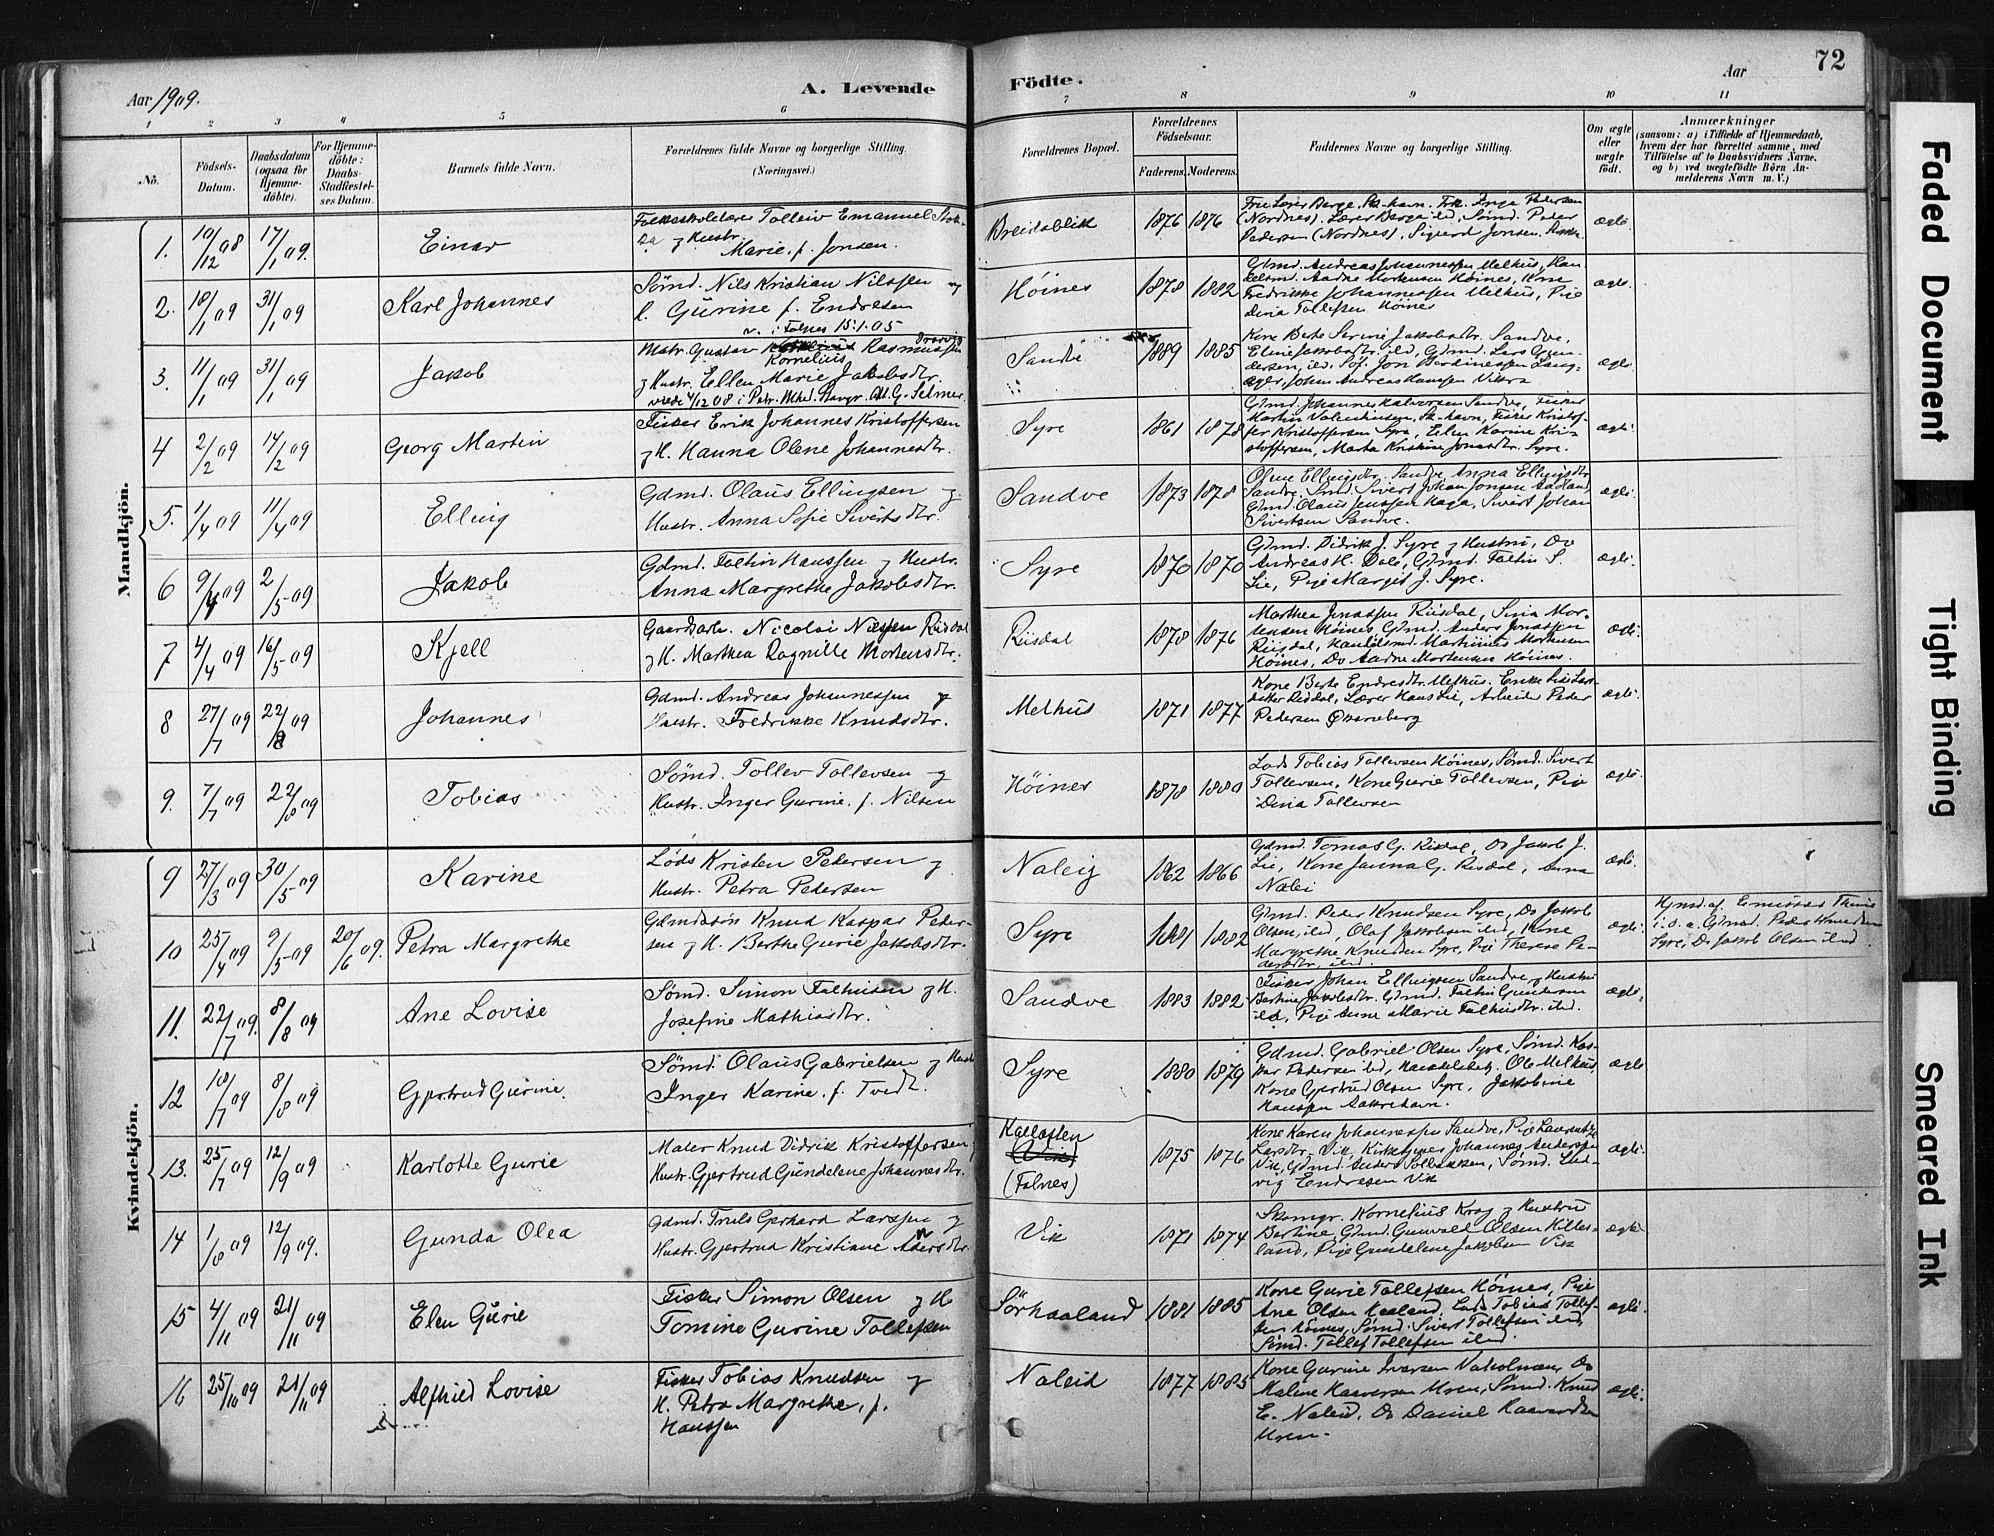 72
Aar 1909.
A. Levende
Födte.
Aar
1 2 3 4 5 6 7 8 9 10 11
No.
Födsels-
Datum.
Daabsdatum
(ogsaa for
Hjemme-
döbte).
For Hjemme-
döbte:
Daabs-
Stadfæstel-
ses Datum.
Barnets fulde Navn.
Forældrenes fulde Navne og borgerlige Stilling.
(Næringsvei.)
Forældrenes Bopæl.
Forældrenes
Födselsaar.
Faderens. Moderens.
Faddernes Navne og borgerlige Stilling.
Om ægte
eller
uægte
födt.
Anmærkninger
(saasom: a) i Tilfælde af Hjemmedaab,
hvem der har forrettet samme, med
Tilföielse af to Daabsvidners Navne,
og b) ved uægtefödte Börn An-
melderens Navn m. V.)
Mandkjön.
1. 10/12 08 17/1 09. Einar
Folkeskolelærer Tolleiv Emanuel
og Hustr.
Marie f. Jonsen.
Breidablik 1876 1876
Pedersen (Nordnes), Sigurd Jonsen
ægte.
2. 18/1 09 31/1 09 Karl Johannes
Sømd. Nils Kristian Nilssen og
h. Gurine f. Endresen
v. i Falnes 15.1.05
Høines 1878 1882
Gdmd. Andreas Johannessen Melhus, Han-
delsmd. Aadne Mortensen Høines, Kone
Fredrikke Johannessen Melhus, Pige
Dina Tollefsen Høines
ægte.
3. 11/1 09 31/1 09 Jakob
Matr. Gustav Kornelius Rasmussen
og Hustr. Ellen Marie Jakobsdtr.
Sandve 1889 1885
Kone Berte Serine Jakobsdtr. Sandve,
ægte
4 2/2 09 14/2 09 Georg Martin
Fisker Erik Johannes Kristoffersen
og H. Hanna Olene Johannesdtr.
Syre 1861 1878
Gdmd. Johannes Halvorsen Sandve, Fisker
Martin Valentinsen, Sk-havn, Fisker Kristof-
fer Kristoffersen Syre, Elen Karine Kri-
stoffersen, Marta Kristine Jonasdtr. Syre.
ægte.
5. 1/4 09 11/4 09 Elling
Gdmd. Olaus Ellingsen og
Hustr. Anna Sofie Sivertsdtr.
Sandve 1873 1878
Oline Ellingsdtr. Sandve, Anna Ellingsdtr.
Sandve,
Gdmd. Olaus Jenssen Haga, Sivert Johan
Sivertsen Sandve.
ægte.
6 9/4 09 2/5 09 Jakob
Gdmd. Faltin Hanssen og Hustr.
Anna Margrethe Jakobsdtr.
Syre 1870 1870
Gdmd. Didrik J. Syre og Hustru, Do
Andreas H. Dale, Gdmd. Faltin S.
Lie, Pige Margit J. Syre.
ægte.
7 4/4 09 16/5 09 Kjell
Gaardarb. Nicolai Nilssen Riisdal
og H. Marthea Ragnille Mortensdtr.
Riisdal 1878 1876
Marthea Jonassen Riisdal, Sina Mor-
tensen Høines, Gdmd. Anders Jonassen
Riisdal, Handelsmd. Martinius Mortensen
Høines, Do Aadne Mortensen Høines.
ægte.
8 27/7 09 22/8 09 Johannes
Gdmd. Andreas Johannessen og
Hustr. Fredrikke Knudsdtr.
Melhus 1871 1877
Kone Berte Endresdtr. Melhus,
Lærer Hans Lie, Arbeider Peder
Pedersen
ægte
9. 7/7 09 22/8 09 Tobias
Sømd. Tollev Tollevsen og
Hustr. Inger Gurine, f. Nilsen
Høines 1878 1880
Lods Tobias Tollevsen Høines, Sømd. Sivert
Tollevsen, Kone Gurie Tollevsen, Pige
Dina Tollevsen
ægte
Kvindekjön.
9 27/3 09 30/5 09 Karine
Lods Kristen Petersen og
Hustr. Petra Petersen
Naleig 1862 1866
Gdmd. Tomas G. Risdal, Do Jakob J.
Lie, Kone Janna G. Risdal, Anna
Nalei
ægte.
10 25/4 09 9/5 09 20/6 09. Petra Margrethe
Gdmdssøn Knud Kaspar Peder-
sen og H. Berthe Gurie Jakobsdtr.
Syre 1881 1882
Gdmd. Peder Knudsen Syre, Do Jakob
Olsen, ibd, Olaf Jakobsen ibd, Kone
Margrethe Knudsen Syre, Pige Therese Pe-
dersdtr, ibd
ægte
Gdmd. Peder Knudsen
Syre, Do Jakob Olsen ibd.
11. 22/7 09. 8/8 09 Ane Lovise
Sømd. Simon Faltinsen og H.
Josefine Mathiasdtr.
Sandve 1883 1882
Fisker Johan Ellingsen Sandve og Hustru
Bertine Jakobsdtr. Gdmd. Faltin Gundersen
ibd, Pige Anne Marie Faltinsdtr. ibd.
ægte.
12 10/7 09 8/8 09 Gjertrud Gurine.
Sømd. Olaus Gabrielsen og Hustr
Inger Karine, f. Tvedt.
Syre 1880 1879
Gdmd. Gabriel Olsen Syre, Sømd. Kas-
par Pedersen ibd, Ole Melhus,
Kone Gjertrud Olsen Syre, Jakobine
Hanssen Aakrehavn.
ægte
13. 25/7 09 12/9 09 Karlotte Gurie
Maler Knud Didrik Kristoffersen
Hustr. Gjertrud Gundelene Johannesdtr.
(Falnes) 1875 1876
Kone Karen Johannessen Sandve, Pige
Larsdtr. Vik, Kirketjener Johannes Anderssen
Vik, Gdmd. Anders Sølbakken, Sømd. Lud-
vig Endresen Vik
ægte.
14 1/8 09 12/9 09. Gunda Olea
Gdmd. Truls Gerhard Larssen og
Hustr. Gjertrud Kristiane Andersdtr.
Vik 1871 1874
Skomgr. Kornelius Krog og Hustru
Bertine, Gdmd. Gunvald Olsen
Pige Gundelene Jakobsen Vik
ægte
15 4/11 09 21/11 09 Elen Gurie
Fisker Simon Olsen og H.
Tomine Gurine Tollefsen
Sørhaaland 1881 1885
Kone Gurie Tollefsen Høines, Pige
Ane Olsen Haaland, Lods Tobias Tollef-
sen Høines, Sømd. Sivert Tollefsen ibd,
Sømd. Tollef Tollefsen ibd.
ægte.
16 25/10 09 21/11 09 Alfhild Lovise
Fisker Tobias Knudsen og
H. Petra Margrethe, f.
Hanssen
Naleid 1877 1885
Kone Gurine Iversen Do
Malene Uren, Sømd. Knud
E. Naleid, Do Daniel
Uren.
ægte.
Faded Document
Tight Binding
Smeared Ink